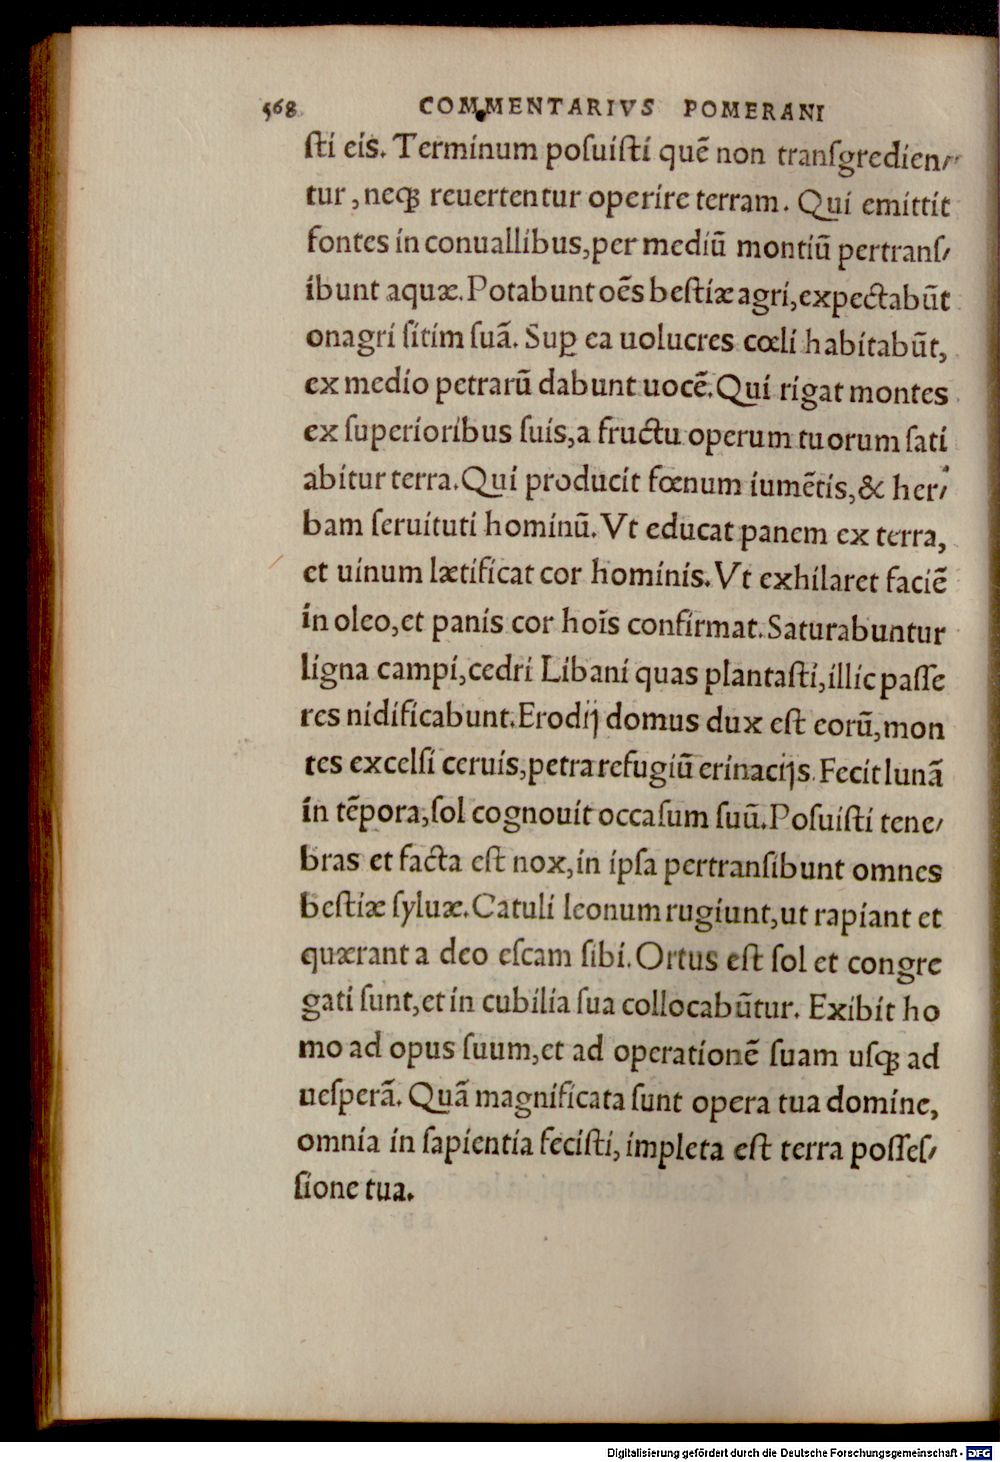 568 COMMENTARIVS POMERANI
ſti eis. Terminum poſuiſti quē non tranſgredien⸗
tur, neqꝫ reuertentur operire terram. Qui emittit
fontes in conuallibus, per mediū montiū pertranſ⸗
ibunt aquæ. Potabunt oēs beſtiæ agri, expectabūt
onagri ſitim ſuā. Suꝑ ea uolucres cœli habitabūt,
ex medio petrarū dabunt uocē. Qui rigat montes
ex ſuperioribus ſuis, a fructu operum tuorum ſati
abitur terra. Qui producit fœnum iumētis, & her⸗
bam ſeruituti hominū. Vt educat panem ex terra,
et uinum lætificat cor hominis. Vt exhilaret faciē
in oleo, et panis cor hoīs confirmat. Saturabuntur
ligna campi, cedri Libani quas plantaſti, illic paſſe
res nidificabunt. Erodij domus dux eſt eorū, mon
tes excelſi ceruis, petra refugiū erinacijs. Fecit lunā
in tēpora, ſol cognouit occaſum ſuū. Poſuiſti tene⸗
bras et facta eſt nox, in ipſa pertranſibunt omnes
beſtiæ ſyluæ. Catuli leonum rugiunt, ut rapiant et
quærant a deo eſcam ſibi. Ortus eſt ſol et congre
gati ſunt, et in cubilia ſua collocabūtur. Exibit ho
mo ad opus ſuum, et ad operationē ſuam uſqꝫ ad
ueſperā. Quā magnificata ſunt opera tua domine,
omnia in ſapientia feciſti, impleta eſt terra poſſeſ⸗
ſione tua.
Digitalisierung gefördert durch die Deutsche Forschungsgemeinschaft - DFG